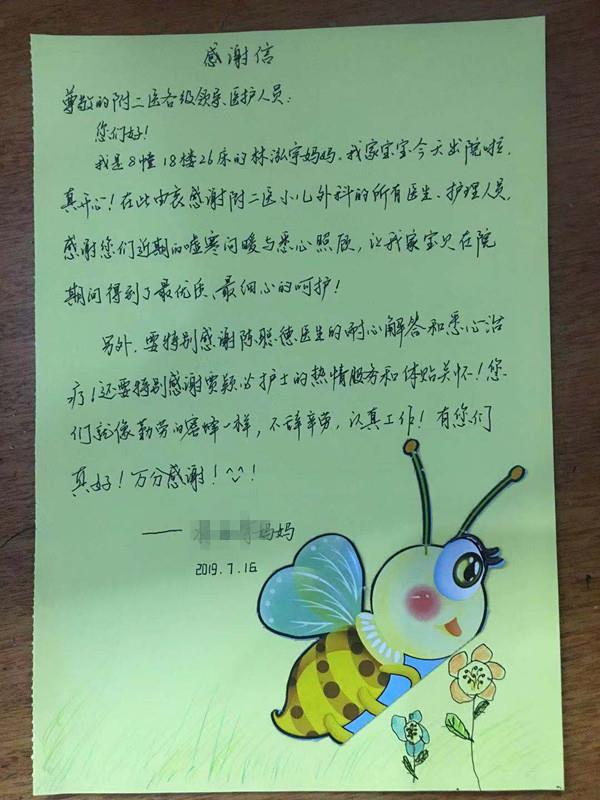 感谢信
尊敬的附二医各级领导、医护人员:
您们好!
我是8幢18楼26床的林泓宇妈妈。我家宝宝今天出院啦,
真开心!在此由衷感谢附二医小儿外科的所有医生、护理人员,
感谢您们近期的嘘寒问暖与悉心照顾,让我家宝贝在院
期间得到了最优质、最细心的呵护!
另外,要特别感谢陈聪德医生的耐心解答和悉心治
疗!还要特别感谢贾颖必护士的热情服务和体贴关怀!您
们就像勤劳的蜜蜂一样,不辞辛劳,认真工作!有您们
真好!万分感谢!^^!
—— 妈妈
2019.7.16